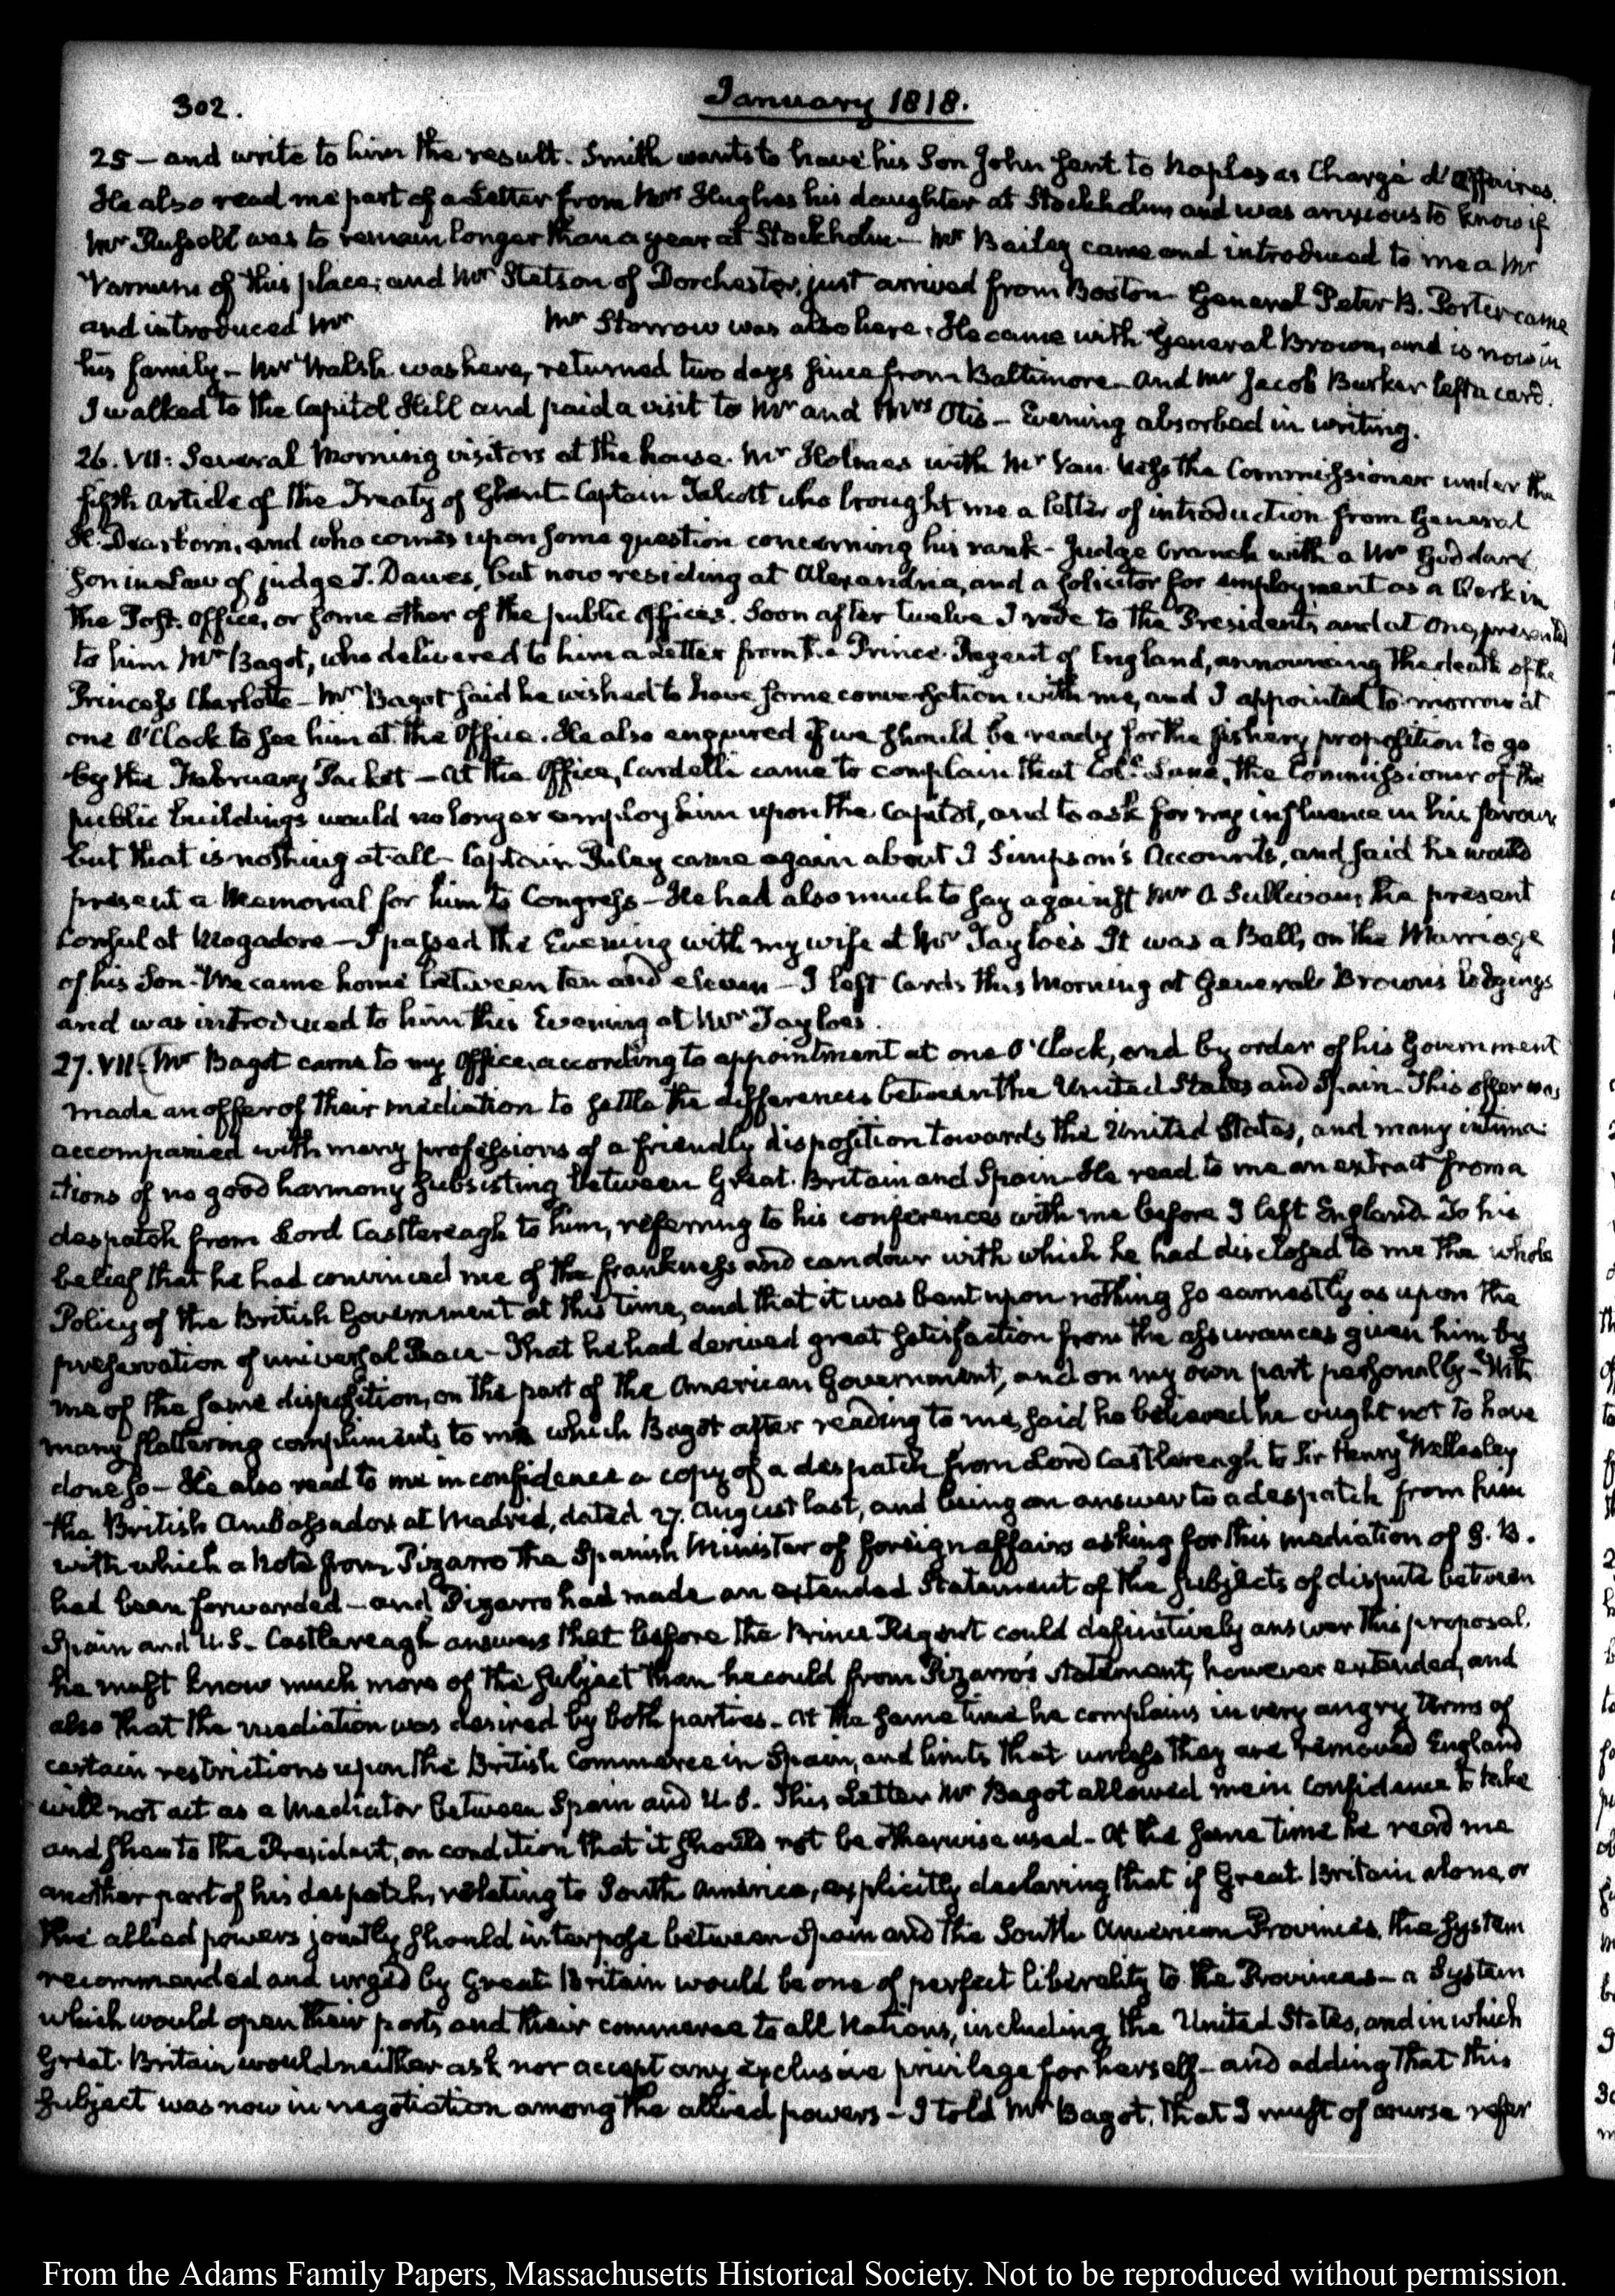 302.
January 1818.
25 – and write to him the result. Smith wants to have his Son John sent to Naples as Chargé d'Affaires.
He also read me part of a Letter from Mrs Hughes his daughter at Stockholm and was anxious to know if
Mr Russell was to remain longer than a year at Stockholm – Mr Bailey came and introduced to me a Mr
Varnum of this place; and Mr Stetson of Dorchester, just arrived from Boston. General Peter B. Porter came
and introduced Mr
Mr Storrow was also here. He came with General Brown, and is now in
his family – Mr Walsh was here, returned two days since from Baltimore – And Mr Jacob Barker left a card.
I walked to the Capitol Hill and paid a visit to Mr and Mrs Otis – Evening absorbed in writing.
26. VII: Several Morning visitors at the house. Mr Holmes with Mr Van Ness the Commissioner under the
fifth Article of the Treaty of Ghent. Captain Talcott who brought me a letter of introduction from General
H. Dearborn, and who comes upon some question concerning his rank – Judge Cranch with a Mr Goddard
son in Law of judge T. Dawes, but now residing at Alexandria, and a solicitor for employment as a Clerk in
the Post-Office, or some other of the public Offices. Soon after twelve I rode to the President's and at One, presented
to him Mr Bagot, who delivered to him a Letter from the Prince Regent of England, announcing the death of the
Princess Charlotte – Mr Bagot said he wished to have some conversation with me, and I appointed to-morrow at
one O'Clock to see him at the Office. He also enquired if we should be ready for the fishery proposition to go
by the February Packet – At the Office, Cardelli came to complain that Col.l Lane, the Commissioner of the
public buildings would no longer employ him upon the Capitol, and to ask for my influence in his favour
but that is nothing at all – Captain Riley came again about J Simpson's Accounts, and said he would
present a Memorial for him to Congress – He had also much to say against Mr O Sullivan, the present
Consul at Mogadore – I passed the Evening with my wife at Mr Tayloe's. It was a Ball, on the Marriage
of his Son – We came home between ten and eleven – I left Cards this Morning at General Brown's lodgings
and was introduced to him this Evening at Mr Tayloe's.
27. VII: Mr Bagot came to my Office, according to appointment at one O'Clock, and by order of his Government
made an offer of their mediation to settle the differences between the United States and Spain – This offer was
accompanied with many professions of a friendly disposition towards the United States, and many intima-
itions of no good harmony subsisting between Great-Britain and Spain – He read to me an extract from a
despatch from Lord Castlereagh to him, referring to his conferences with me before I left England – To his
belief that he had convinced me of the frankness and candour with which he had disclosed to me the whole
Policy of the British Government at this time, and that it was bent upon nothing so earnestly as upon the
preservation of universal Peace – That he had derived great satisfaction from the assurances given him by
me of the same disposition, on the part of the American Government, and on my own part personally – With
many flattering compliments to me which Bagot after reading to me, said he believed he ought not to have
done so – He also read to me in confidence a copy of a despatch from Lord Castlereagh to Sir Henry Wellesley
the British Ambassador at Madrid, dated 27. August last, and being an answer to a despatch from him
with which a Note from Pizarro the Spanish Minister of foreign affairs asking for this mediation of G. B.
had been forwarded – and Pizarro had made an extended Statement of the subjects of dispute between
Spain and U.S. – Castlereagh answers that before the Prince Regent could definitively answer this proposal,
he must know much more of the subject than he could from Pizarro's statement, however extended, and
also that the mediation was desired by both parties – At the same time he complains in very angry terms of
certain restrictions upon the British Commerce in Spain, and hints that unless they are removed England
will not act as a Mediator between Spain and U.S. This Letter Mr Bagot allowed me in confidence to take
and shew to the President, on condition that it should not be otherwise used – At the same time he read me
another part of his despatch, relating to South America, explicitly declaring that if Great-Britain alone, or
the allied powers jointly should interpose between Spain and the South American Provinces, the system
recommended and urged by Great-Britain would be one of perfect liberality to the Provinces – a System
which would open their ports and their commerce to all Nations, including the United States, and in which
Great-Britain would neither ask nor accept any exclusive privilege for herself – and adding that this
subject was now in negotiation among the allied powers – I told Mr Bagot, that I must of course refer
From the Adams Family Papers, Massachusetts Historical Society. Not to be reproduced without permission.